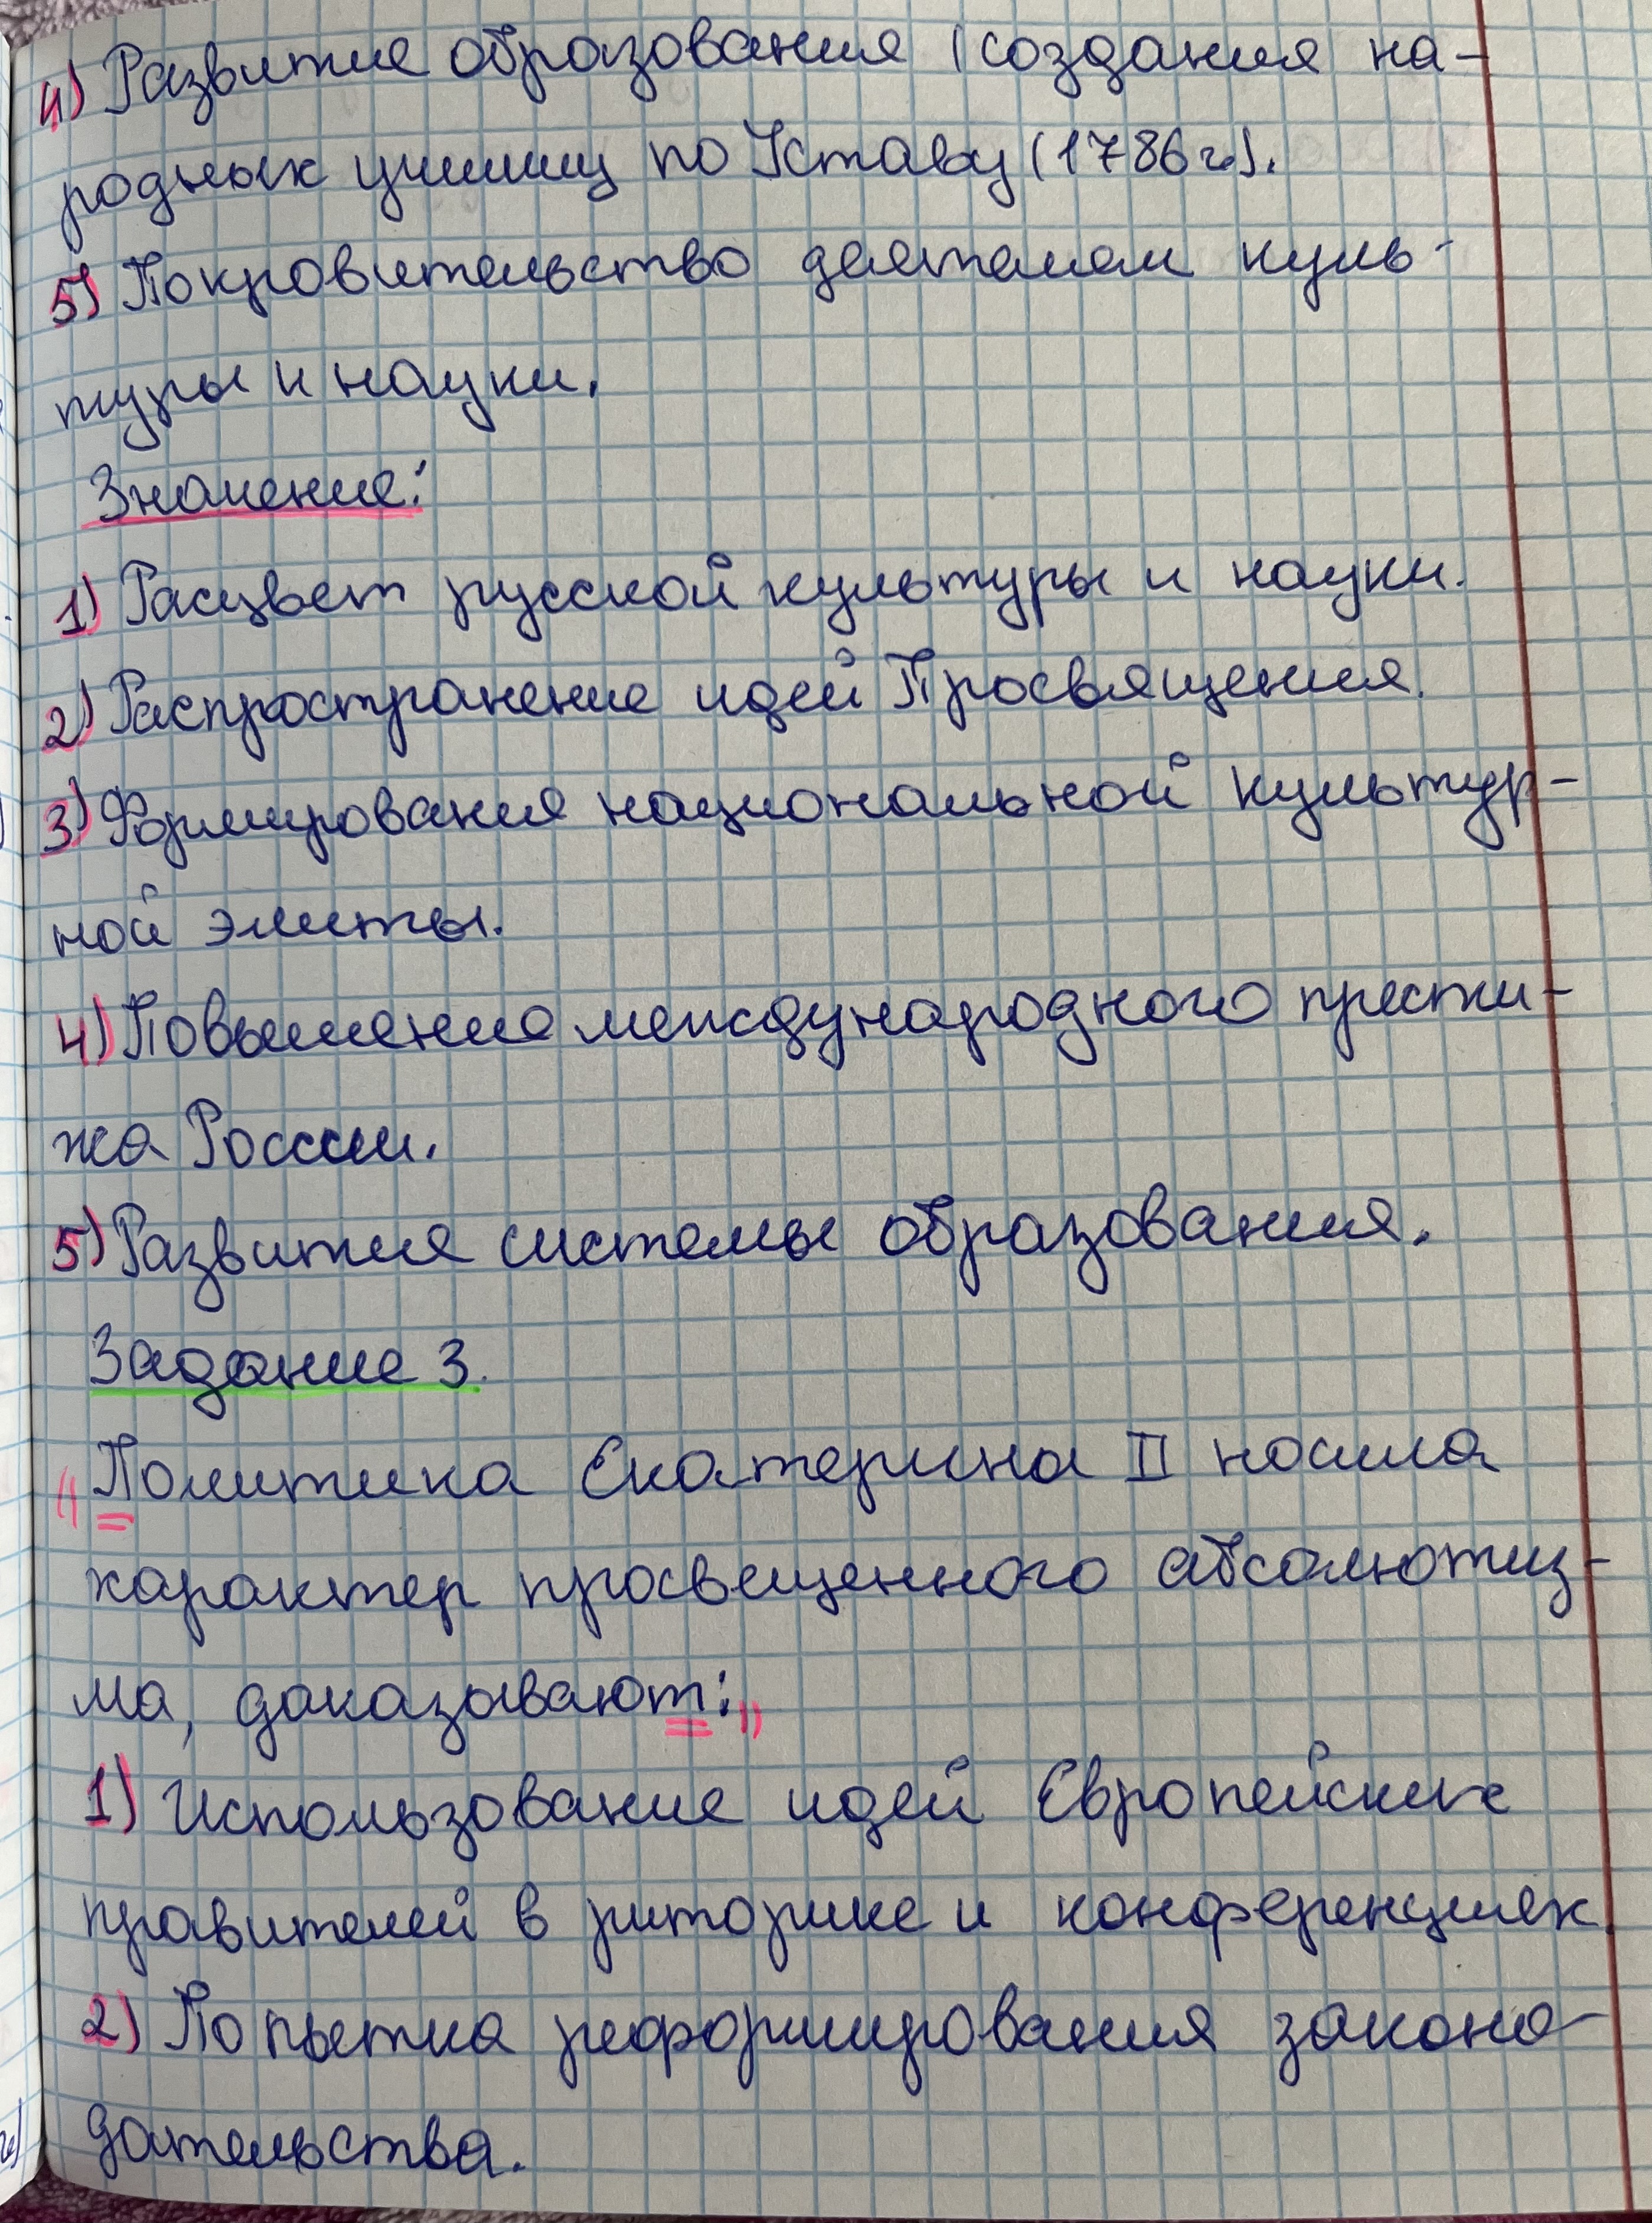 4) Развитие образования (создания на-
родных училищ по Уставу (1786 г).
5) Покровительство деятелем куль-
туры и науки.
Значение:
1) Расцвет русской культуры и науки.
2) Распространение идей Просвящения.
3) Формирования национальной культур-
ной элиты.
4) Повышение международного прести-
жа России.
5) Развития системы образования.
Задание 3.
"Политика Екатерина II носила
характер просвещенного абсолютиз-
ма, доказывают:"
1) Использование идей Европейских
правителей в риторике и конференциях.
2) Попытка реформирования законо-
дательства.